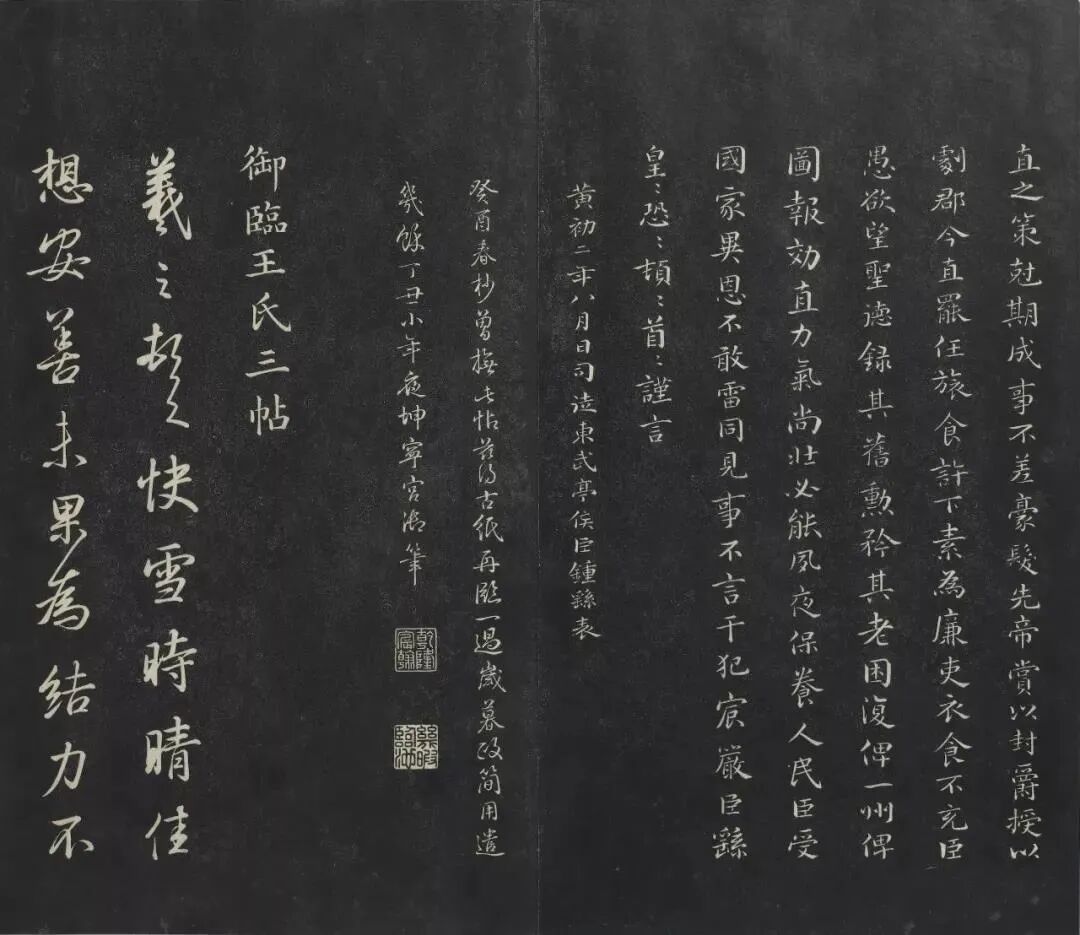 直之策尅期成事不差豪髮先帝賞以封爵授以
劇郡今直罷任旅食許下素為廉吏衣食不充臣
愚欲望聖德録其舊勳矜其老困復俾一州俾
圖報効直力氣尚壯必能夙夜保養人民臣受
國家異恩不敢雷同見事不言干犯宸嚴臣繇
皇〻恐〻頓〻首〻謹言
黄初二年八月日司徒東武亭侯臣鍾繇表
癸酉春杪曾撫此帖茲得古紙再臨一過歲暮政簡用遣
幾餘丁丑小年夜坤寧宮御筆
乾隆宸翰
御臨王氏三帖
羲之頓首快雪時晴佳
想安善未果為結力不